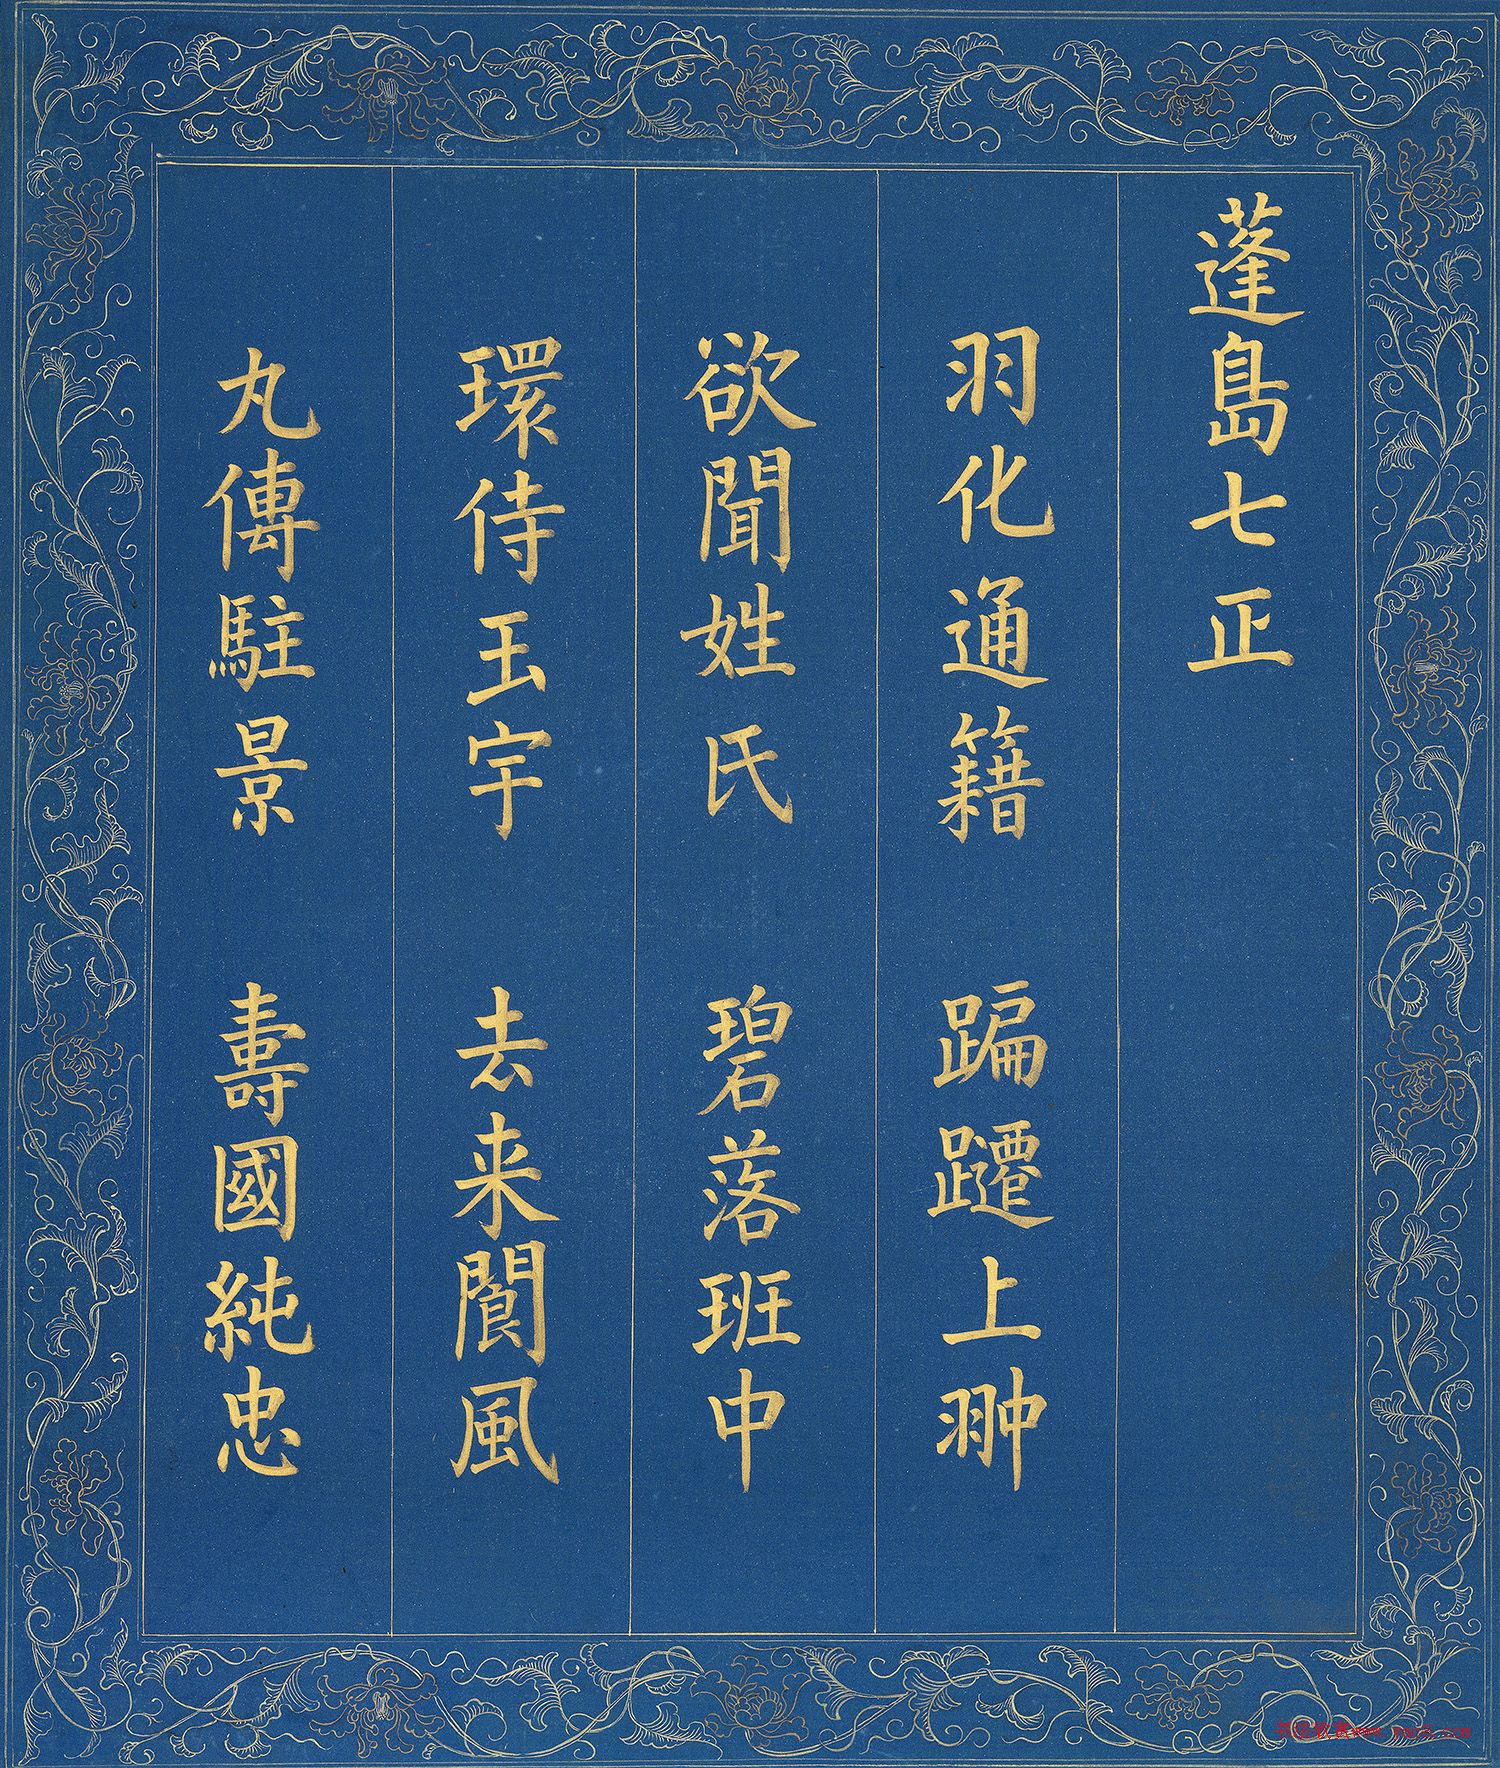 蓬島七正
羽化通籍 蹁躚上翀
欲聞姓氏 碧落班中
環侍玉宇 去来閬風
丸傳駐景 壽國純忠